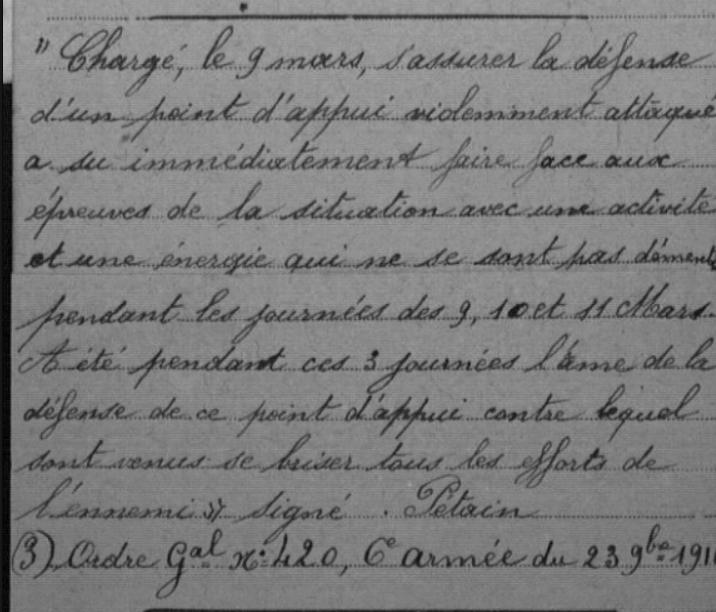 " Chargé, le 9 mars, s'assurer la défense
d'un point d'appui violemment attaqué
a su immédiatement faire face aux
épreuves de la situation avec une activité
et une énergie qui ne se sont pas dément
pendant les journées des 9, 10 et 11 Mars.
A été pendant ces 3 journées l'âme de la
défense de ce point d'appui contre lequel
sont venus se briser tous les efforts de
l'énnemi " signé . Pétain
(3) Ordre Gal No 420, 6e armée du 23 9bre 191